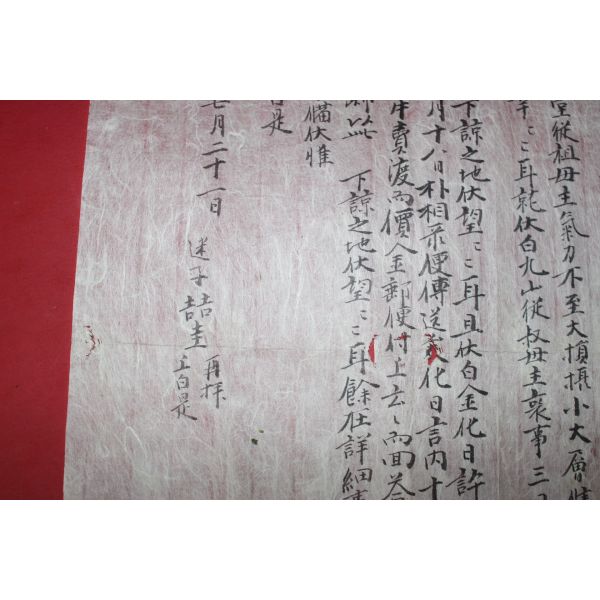 堂從祖母主氣力不至大損攝小大層
耳就伏白九山從叔母主喪事三
下諒之地伏望〻〻耳且伏白金化日許
月十八日朴相 便傳送 化日言內十
牛賣渡而價金郵便付上云〻而回
下諒之地伏望〻〻耳餘在詳細
備伏惟
是
七月二十一日
迷子喆圭再拜
白是